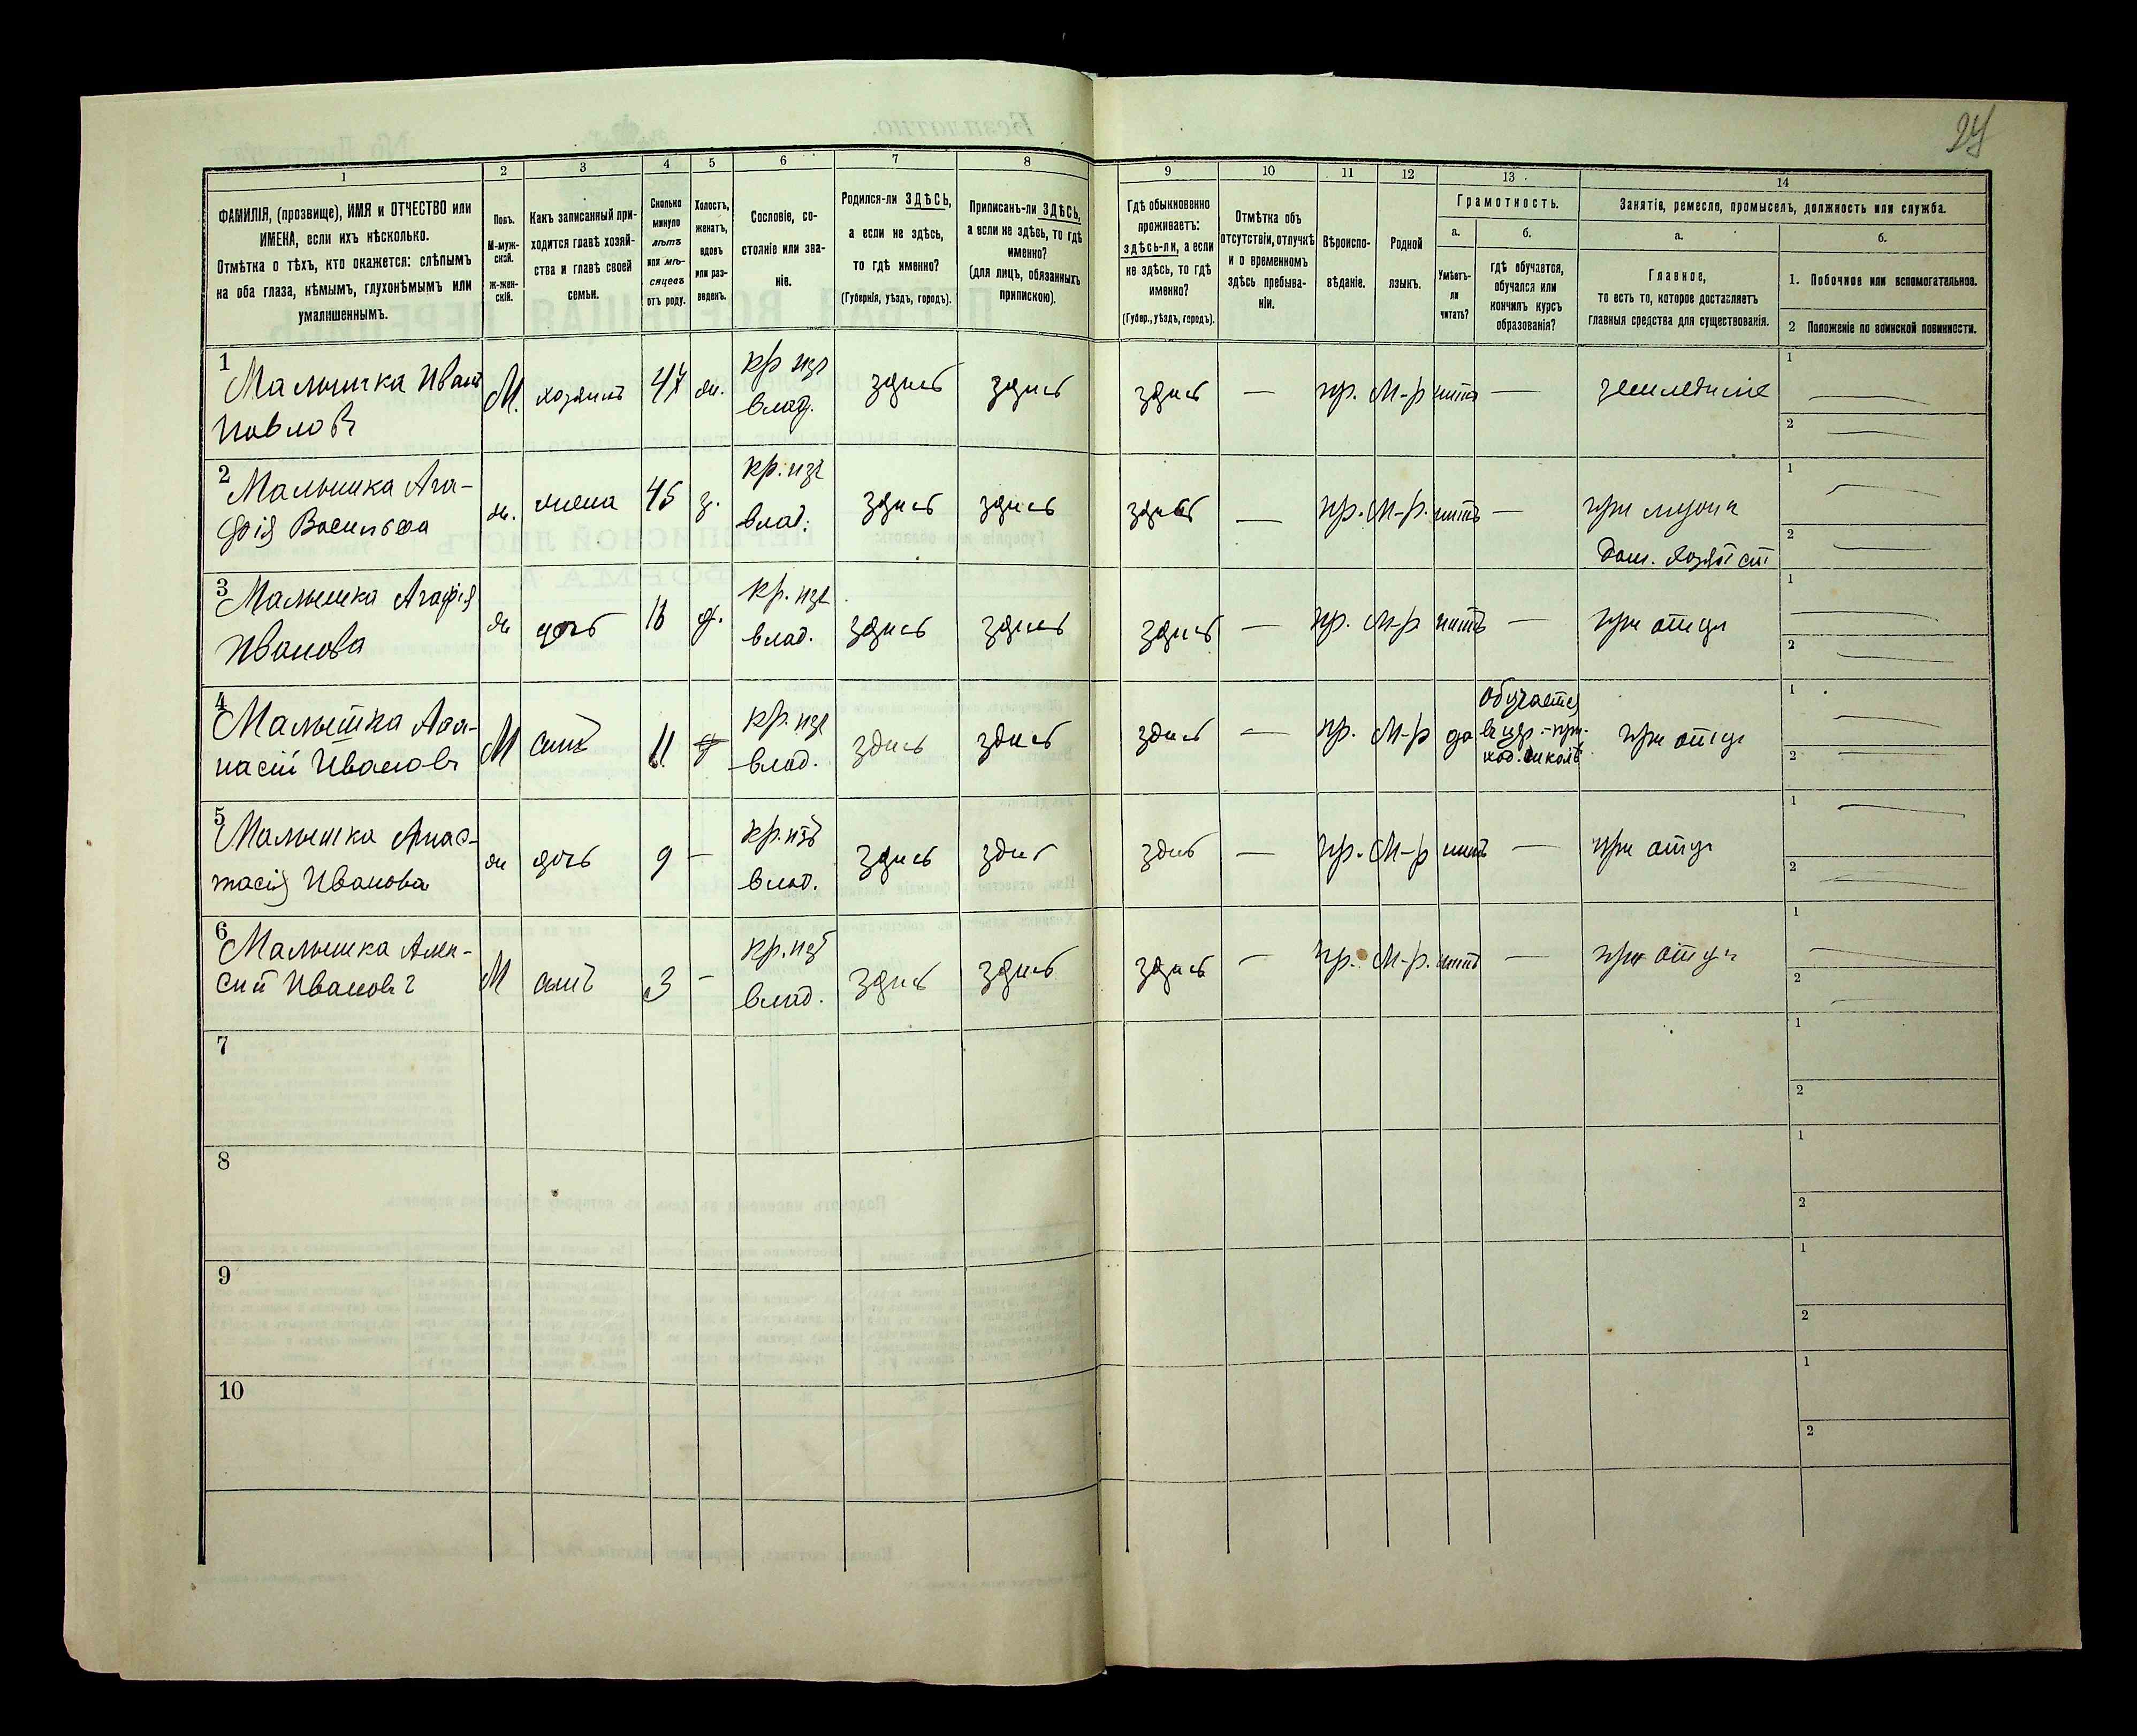 24
1 2 3 4 5 6 7 8 9 10 11 12 13 14
ФАМИЛІЯ, (прозвище), ИМЯ и ОТЧЕСТВО или
ИМЕНА, если ихъ нѣсколько.
Отмѣтка о тѣхъ, кто окажется: слѣпымъ
на оба глаза, нѣмымъ, глухонѣмымъ или
умалишеннымъ.
Полъ.
М-муж-
ской.
Ж-жен-
скій.
Какъ записанный при-
ходится главѣ хозяй-
ства и главѣ своей
семьи.
Сколько
минуло
лѣтъ
или мѣ-
сяцевъ
отъ роду.
Холостъ,
женатъ,
вдовъ
или раз-
веденъ.
Сословіе, со-
стояніе или зва-
ніе.
Родился-ли ЗДѢСЬ,
а если не здѣсь,
то гдѣ именно?
(Губернія, уѣздъ, городъ).
Приписанъ-ли ЗДѢСЬ,
а если не здѣсь, то гдѣ
именно?
(для лицъ, обязанныхъ
припискою).
Гдѣ обыкновенно
проживаетъ:
здѣсь-ли, а если
не здѣсь, то гдѣ
именно?
(Губер., уѣздъ, городъ).
Отмѣтка объ
отсутствіи, отлучкѣ
и о временномъ
здѣсь пребыва-
ніи.
Вѣроиспо-
вѣданіе.
Родной
языкъ.
Грамотность.
а.
Умѣетъ-
ли
читать?
б.
гдѣ обучается,
обучался или
кончилъ курсъ
образованія?
Занятіе, ремесло, промыселъ, должность или служба.
а.
Главное,
то есть то, которое доставляетъ
главныя средства для существованія.
б.
1. Побочное или вспомогательное.
2 Положеніе по воинской повинности.
1 Малышка Иванъ
Павловъ
М. хозяинъ 47 ж. кр изъ
влад.
здѣсь здѣсь здѣсь — пр. М-р нѣтъ — земледѣліе
1 —
2 —
2 Малышка Ага-
фія Васильева
ж. жена 45 з. кр. изъ
влад.
здѣсь здѣсь здѣсь — пр. М-р. нѣтъ — при мужѣ
дом.
1 —
2 —
3 Малышка Агафія
Иванова
ж дочь д. кр. изъ
влад.
здѣсь здѣсь здѣсь — пр. М-р нѣтъ — при отцѣ
1 —
2 —
4 Малышка
Ивановъ
М сынъ 11 кр. изъ
влад.
здѣсь здѣсь здѣсь — пр. М-р да обучается
въ цер.-при-
ход. школѣ
при отцѣ
1 —
2 —
5 Малышка Анас-
тасія Иванова
ж дочь 9 — кр. изъ
влад.
здѣсь здѣсь здѣсь — пр. М-р нѣтъ — при отцѣ
1 —
2 —
6 Малышка Алек-
сій Ивановъ
М сынъ 3 - кр. изъ
влад.
здѣсь здѣсь здѣсь — пр. М-р. нѣтъ — при отцѣ
1 —
2 —
7
1
2
8
1
2
9
1
2
10
1
2